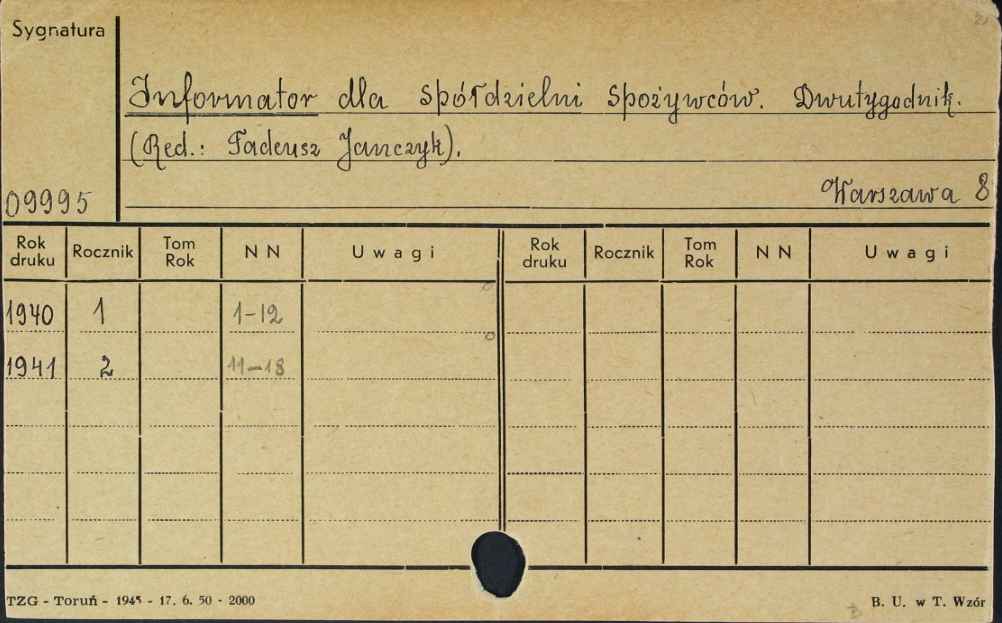 Sygnatura
Informator dla spółdzielni spożywców. Dwutygodnik.
(Red.: Tadeusz Janczyk).
09995
Warszawa 8
Rok druku Rocznik Tom Rok N N Uwagi Rok druku Rocznik Tom Rok N N Uwagi
1940 1 1-12
1941 2 11-18
TZG - Toruń - 1945 - 17. 6. 50 - 2000 B. U. w T. Wzór